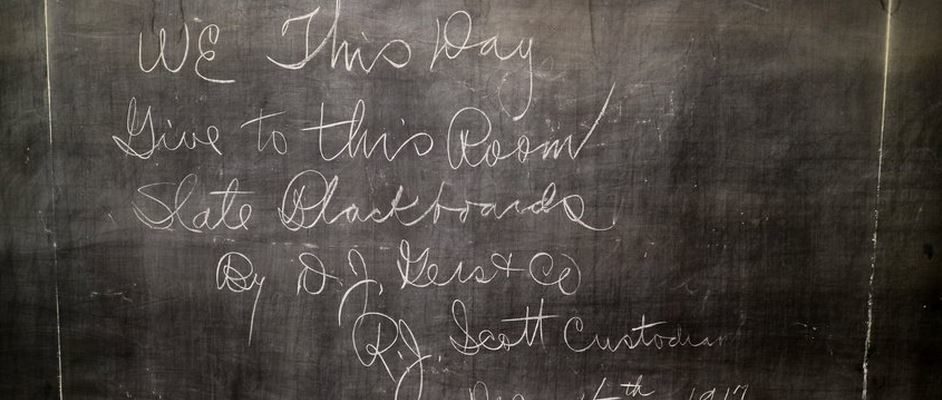 WE This Day
Give to this Room
Slate Blackboards
By D.J. Gers & Co
R.J. Scott Custodian
4th 1917